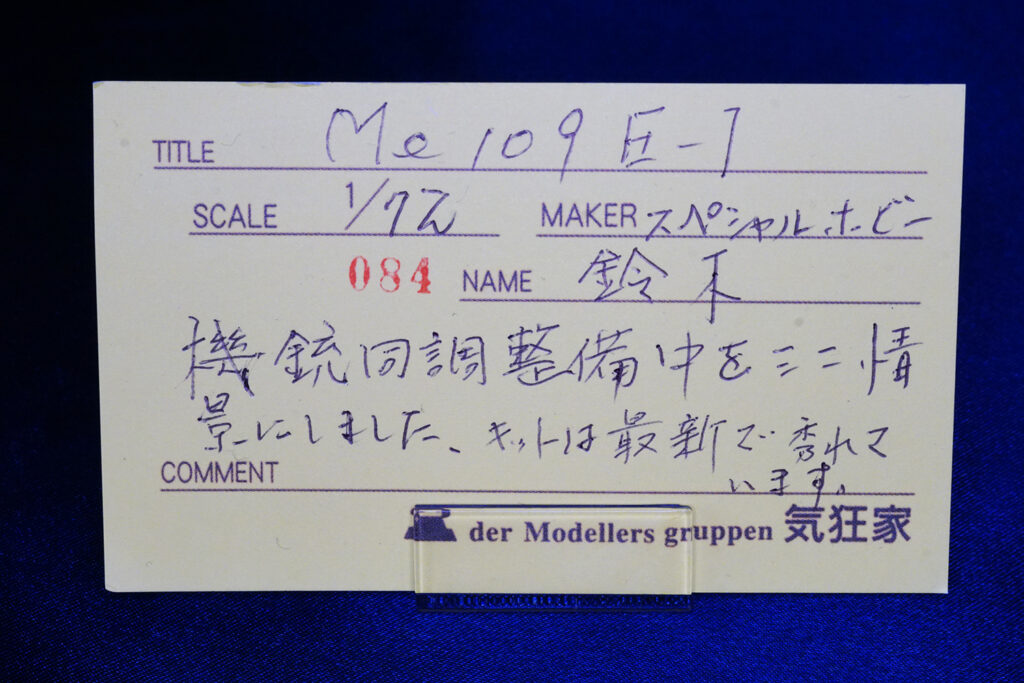 TITLE Me 109 E-1
SCALE 1/72 MAKER スペシャルホビー
084 NAME 鈴木
機銃同調整備中をミニ情
景にしました、キットは最新で秀れて
います。
COMMENT
der Modellers gruppen 気狂家